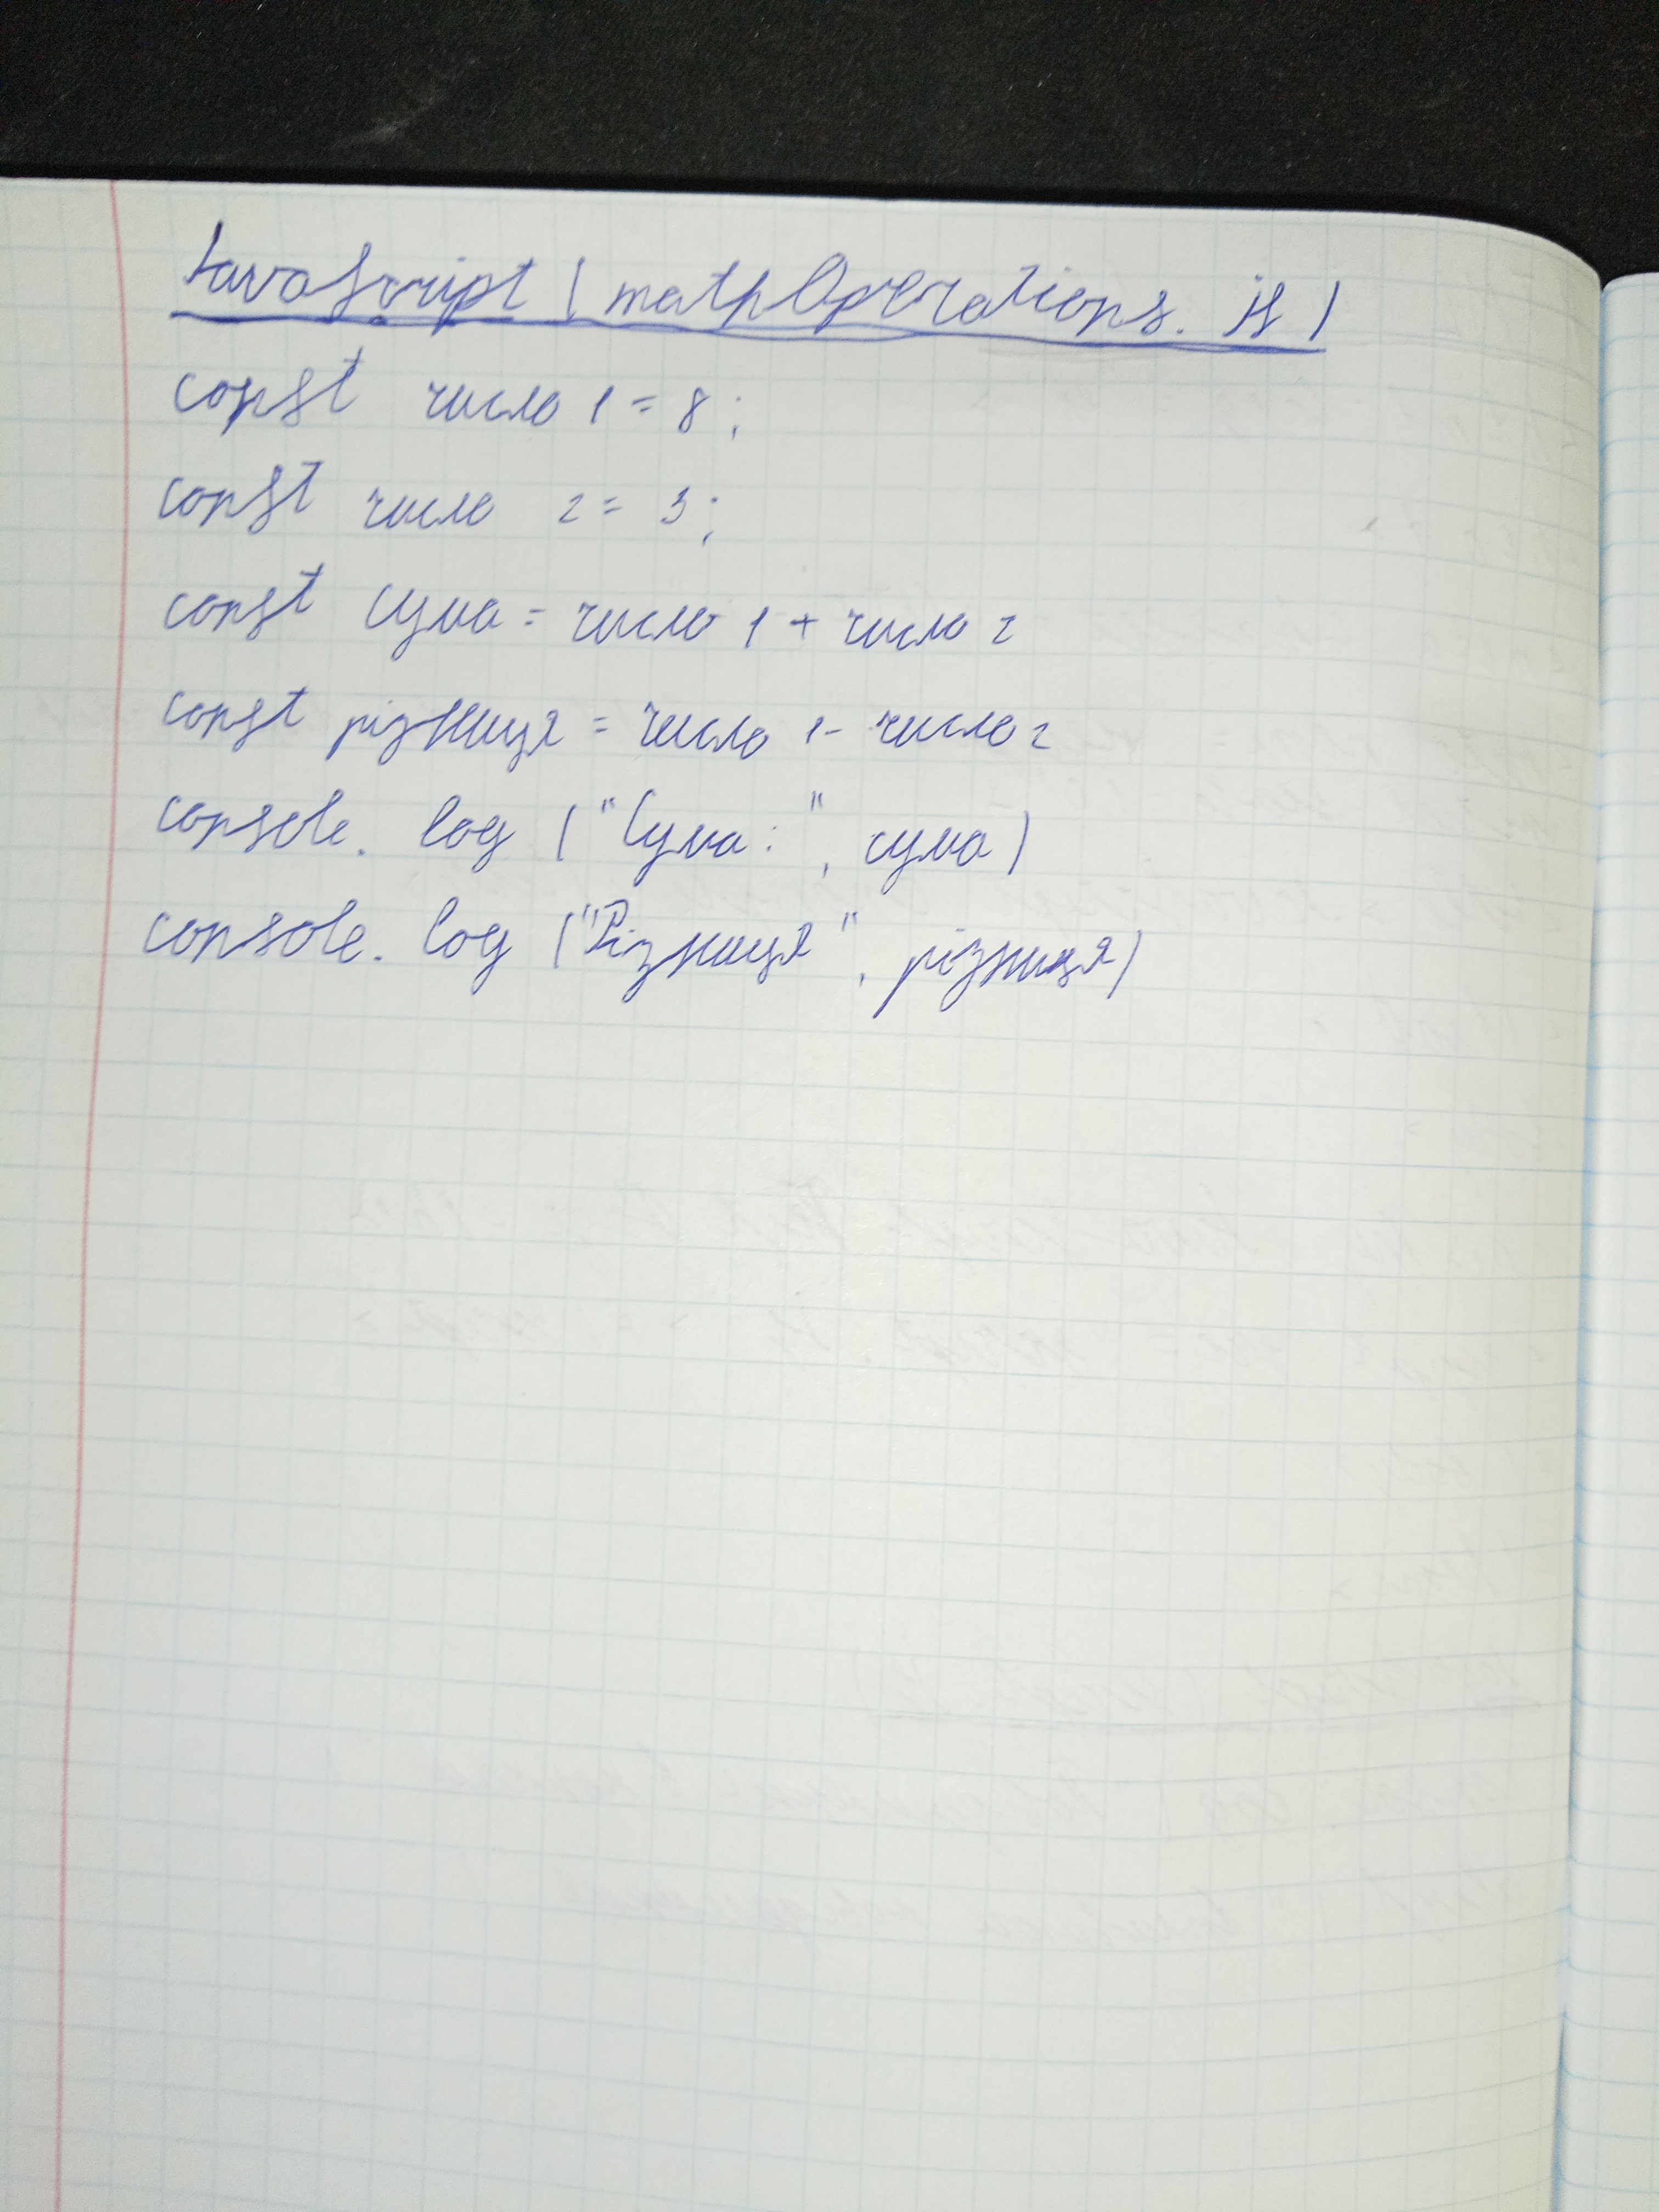 JavaScript (mathOperations.js)
const число 1 = 8;
const число 2 = 3;
const сума = число 1 + число 2
const різниця = число 1 - число 2
console. log ("Сума:", сума)
console. log ("Різниця", різниця)